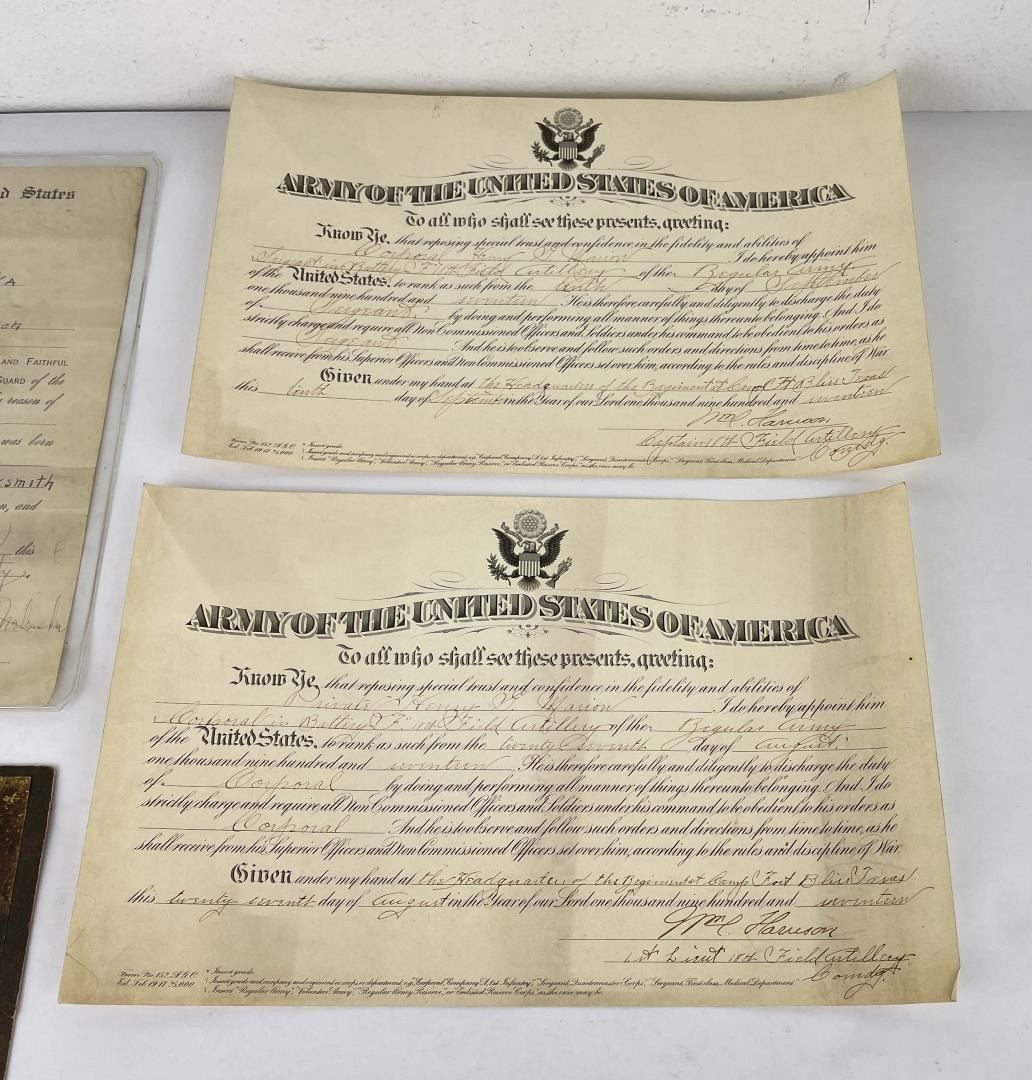 d States
AND FAITHFUL
GUARD of the
reason of
was born
smith
n, and
this
ARMY OF THE UNITED STATES OF AMERICA
To all who shall see these presents, greeting:
Know Ye, that reposing special trust and confidence in the fidelity and abilities of
Corporal Henry Marion I do hereby appoint him
Sergeant in Battery "F" 18th Field Artillery of the Regular Army
of the United States, to rank as such from the tenth day of September
one thousand nine hundred and seventeen He is therefore carefully and diligently to discharge the duty
of Sergeant by doing and performing all manner of things thereunto belonging. And I do
strictly charge and require all Non Commissioned Officers and Soldiers under his command to be obedient to his orders as
Sergeant And he is to observe and follow such orders and directions from time to time, as he
shall receive from his Superior Officers and Non Commissioned Officers set over him, according to the rules and discipline of War.
Given under my hand at the Headquarters of the Regiment at Camp Ft Bliss Texas
this tenth day of September in the Year of our Lord one thousand nine hundred and seventeen
Wm C. Harrison
Captain 18th Field Artillery
Comdg.
Form No. 152, A.G.O. * Insert grade.
Ed. Feb. 19 17 25,000
ARMY OF THE UNITED STATES OF AMERICA
To all who shall see these presents, greeting:
Know Ye, that reposing special trust and confidence in the fidelity and abilities of
Private Henry Marion I do hereby appoint him
Corporal in Battery "F" 18th Field Artillery of the Regular Army
of the United States, to rank as such from the twenty seventh day of August
one thousand nine hundred and seventeen He is therefore carefully and diligently to discharge the duty
of Corporal by doing and performing all manner of things thereunto belonging. And I do
strictly charge and require all Non Commissioned Officers and Soldiers under his command to be obedient to his orders as
Corporal And he is to observe and follow such orders and directions from time to time, as he
shall receive from his Superior Officers and Non Commissioned Officers set over him, according to the rules and discipline of War.
Given under my hand at the Headquarters of the Regiment at Camp Fort Bliss Texas
this twenty seventh day of August in the Year of our Lord one thousand nine hundred and seventeen
Wm C. Harrison
1st Lieut 18th Field Artillery
Comdg.
Form No. 152, A.G.O. * Insert grade.
Ed. Feb. 19 17 25,000 † Insert grade and company and regiment or corps or department, e.g., "Corporal, Company A, 1st Infantry," "Sergeant, Quartermaster Corps," "Sergeant, First class, Medical Department."
Insert "Regular Army," "Volunteer Army," "Regular Army Reserve," or Enlisted Reserve Corps," as the case may be.